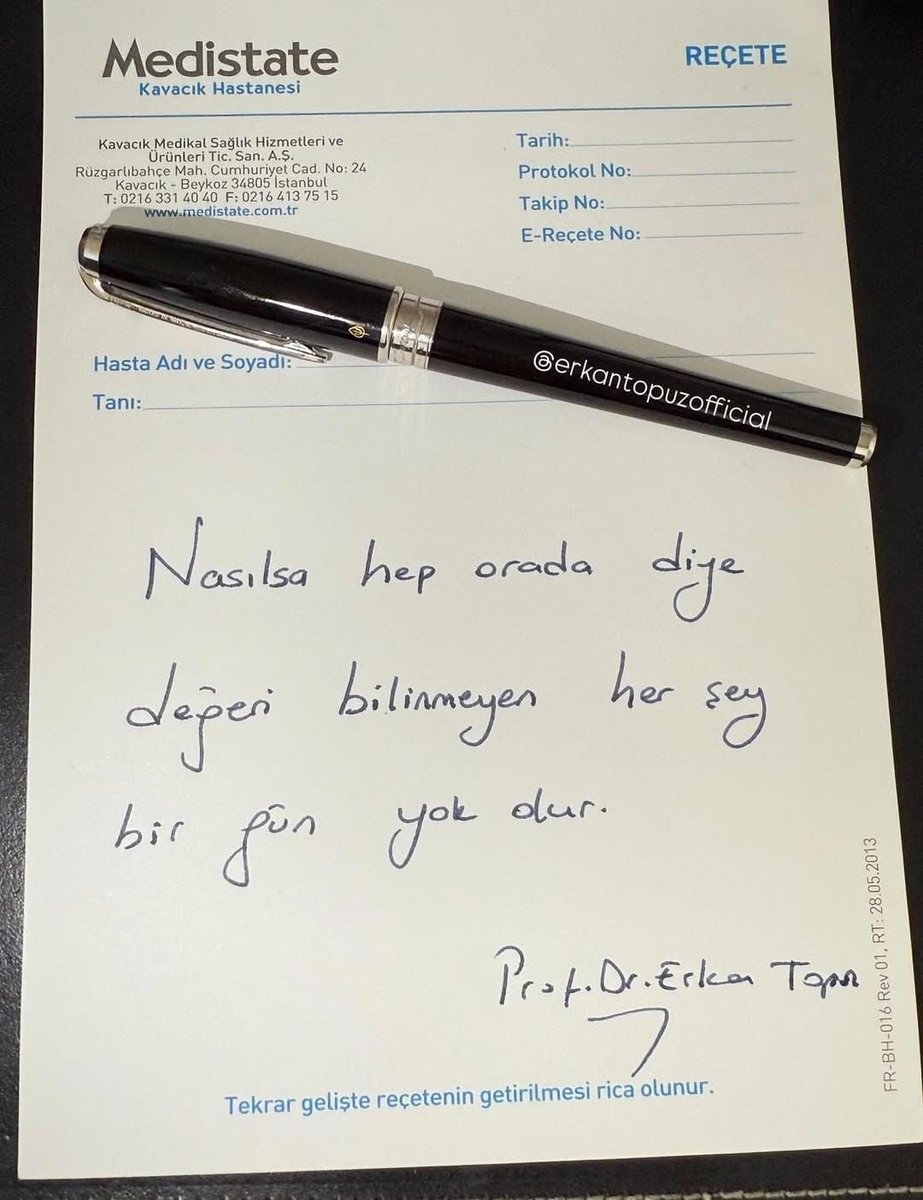 Medistate
Kavacık Hastanesi
REÇETE
Kavacık Medikal Sağlık Hizmetleri ve
Ürünleri Tic. San. A.Ş.
Rüzgarlıbahçe Mah. Cumhuriyet Cad. No: 24
Kavacık - Beykoz 34805 İstanbul
T: 0216 331 40 40 F: 0216 413 75 15
www.medistate.com.tr
Tarih:
Protokol No:
Takip No:
E-Reçete No:
Hasta Adı ve Soyadı:
Tanı:
@erkantopuzofficial
Nasılsa hep orada diye
değeri bilinmeyen her şey
bir gün yok olur.
Prof. Dr. Erkan Topuz
Tekrar gelişte reçetenin getirilmesi rica olunur.
FR-BH-016 Rev 01, RT: 28.05.2013